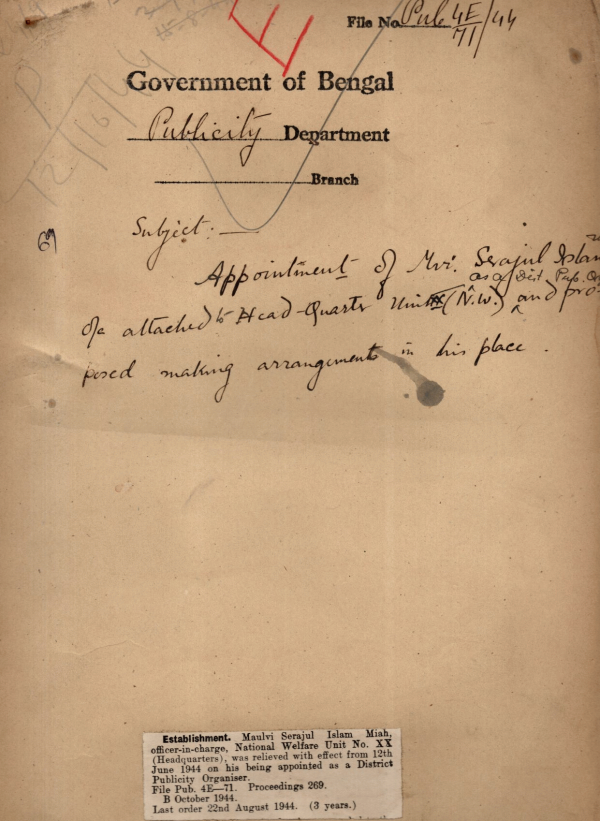 File No. Pub 4E/71/44
Government of Bengal
Publicity Department
Branch
Subject:—
Appointment of Mvi. Serajul Islam
as a Dist. Pub. Or
attached to Head-Quarter Unit (N.W.) and pro-
posed making arrangements in his place.
Establishment. Maulvi Serajul Islam Miah,
officer-in-charge, National Welfare Unit No. XX
(Headquarters), was relieved with effect from 12th
June 1944 on his being appointed as a District
Publicity Organiser.
File Pub. 4E—71. Proceedings 269.
B October 1944.
Last order 22nd August 1944. (3 years.)